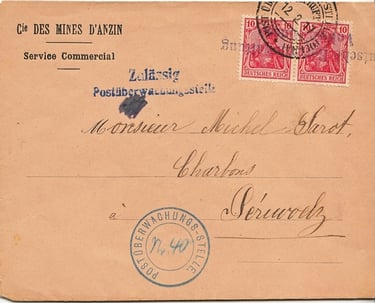 Cie DES MINES D'ANZIN
Service Commercial
10 10
DEUTSCHES REICH DEUTSCHES REICH
Zulässig
Postüberwachungsstelle
Monsieur Michel Sarot,
Charbons
à Péruwelz
POSTÜBERWACHUNGS-STELLE
No. 40